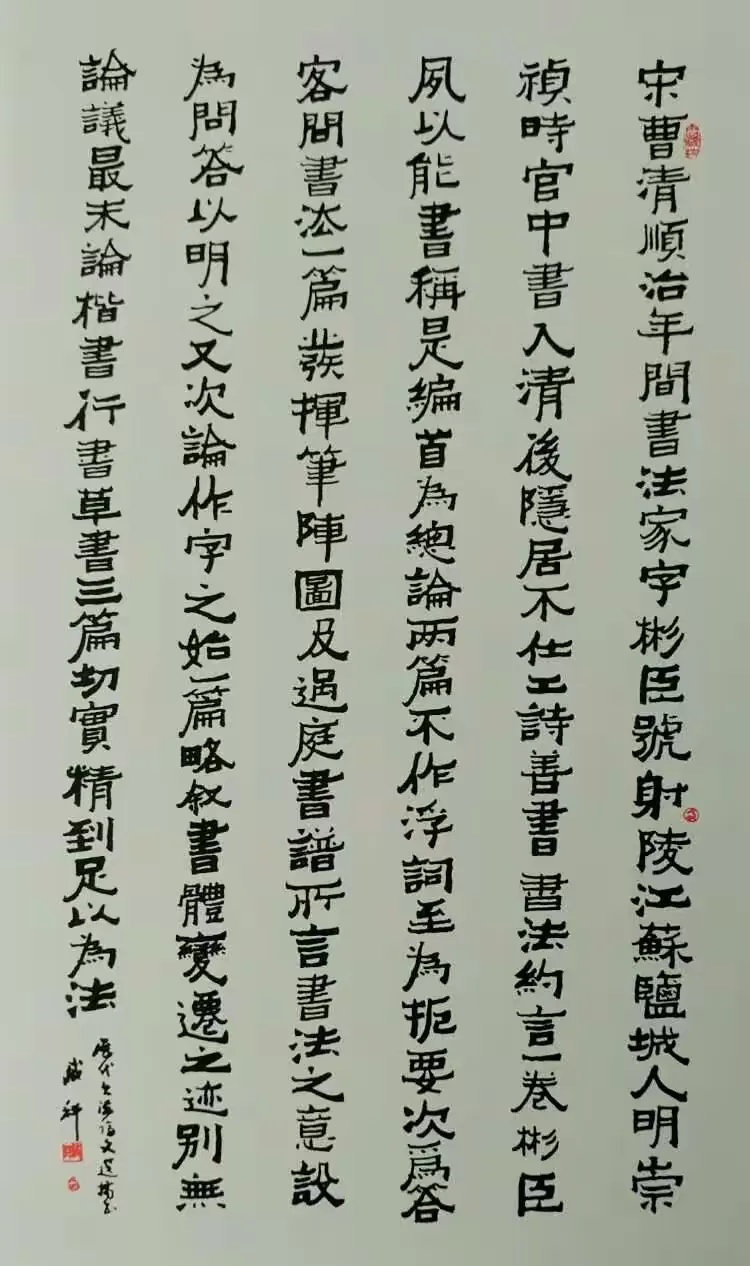 宋曹清順治年間書法家字彬臣號射陵江蘇鹽城人明崇
禎時官中書入清後隱居不仕工詩善書書法約言一卷彬臣
夙以能書稱是編首為總論兩篇不作浮詞至為扼要次爲答
客問書法一篇發揮筆陣圖及過庭書譜所言書法之意設
為問答以明之又次論作字之始一篇略叙書體變遷之迹別無
論議最末論楷書行書草書三篇切實精到足以為法
歷代書法論文選摘句